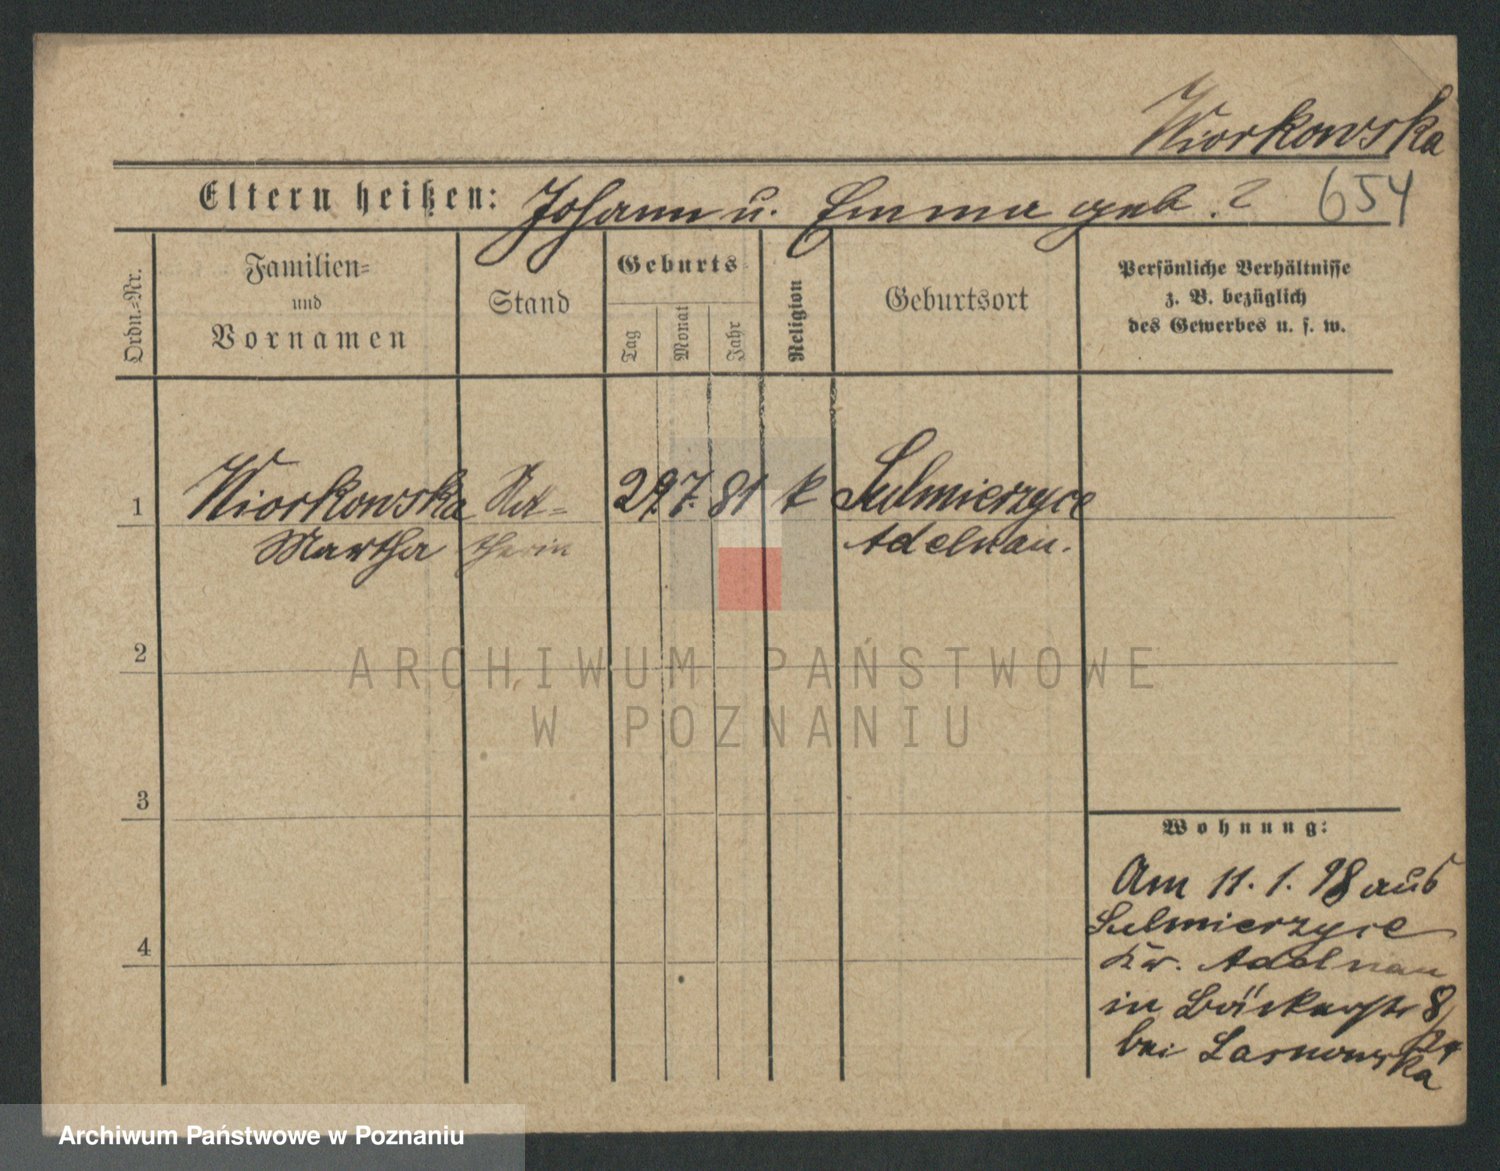 Wiorkowska
Eltern heißen: Johann u. Emma geb. ?
654
Ordn.-Nr.
Familien-
und
Vornamen
Stand
Geburts
Tag
Monat
Jahr
Religion
Geburtsort
Persönliche Verhältnisse
z. B. bezüglich
des Gewerbes u. s. w.
1 Wiorkowska 29. 7. 81 k Sulmierzyce
Martha therin Adelnau.
2
ARCHIWUM PAŃSTWOWE
W POZNANIU
3
Wohnung:
Am 11. 1. 98 aus
Sulmierzyce
Kr. Adelnau
4
in Bäckerstr 8/
bei
Archiwum Państwowe w Poznaniu